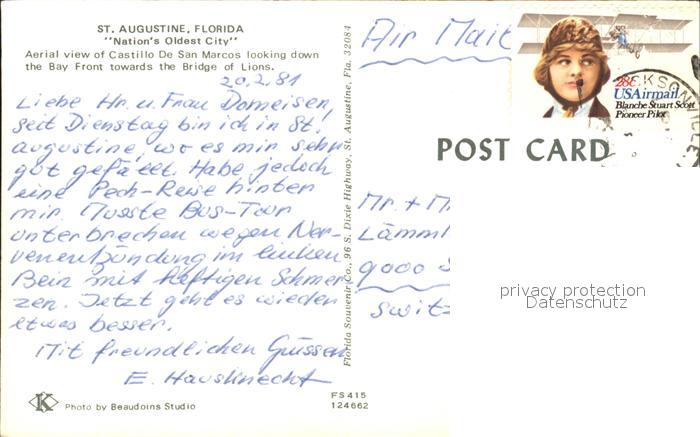 ST. AUGUSTINE, FLORIDA
"Nation's Oldest City"
Aerial view of Castillo De San Marcos looking down
the Bay Front towards the Bridge of Lions.
20.2.81
Liebe Hr. u. Frau Domeisen,
seit Dienstag bin ich in St.
Augustine, wo es mir sehr
gut gefällt. Habe jedoch
eine Pech-Reise hinter
mir. Musste Bus-Tour
unterbrechen wegen Ner-
venentzündung im linken
Bein mit heftigen Schmer-
zen. Jetzt geht es wieder
etwas besser.
Mit freundlichen Grüssen
E. Hausknecht
K
Photo by Beaudoins Studio
FS415
124662
Florida Souvenir Co., 96 S. Dixie Highway, St. Augustine, Fla. 32084
Air Mail
28c
USAirmail
Blanche Stuart Scott
Pioneer Pilot
CKSONVILLE
POST CARD
Mr. + M
Lämml
9000 S
Switz
privacy protection
Datenschutz